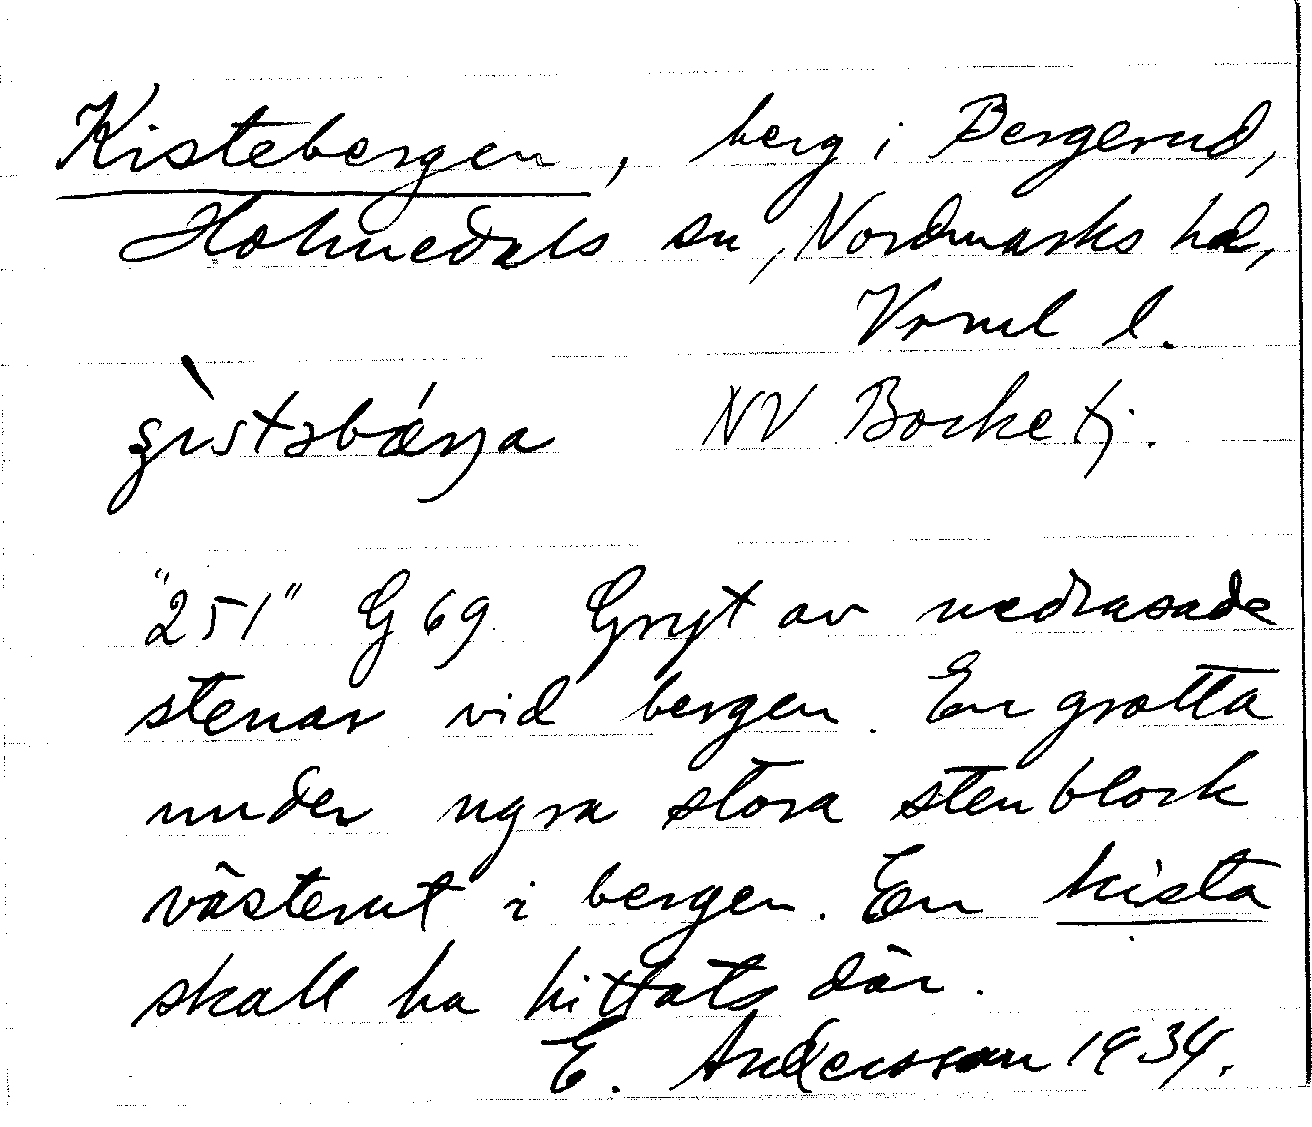 Kistebergen, berg i Bergerud,
Holmedals sn, Nordmarks hd,
Vrml l.
NV Bocketj.
"251" G69. Gryt av nedrasade
stenar vid bergen. En grotta
under ngra stora stenblock
västerut i bergen. En kista
skall ha hittats där.
E. Andersson 1934.